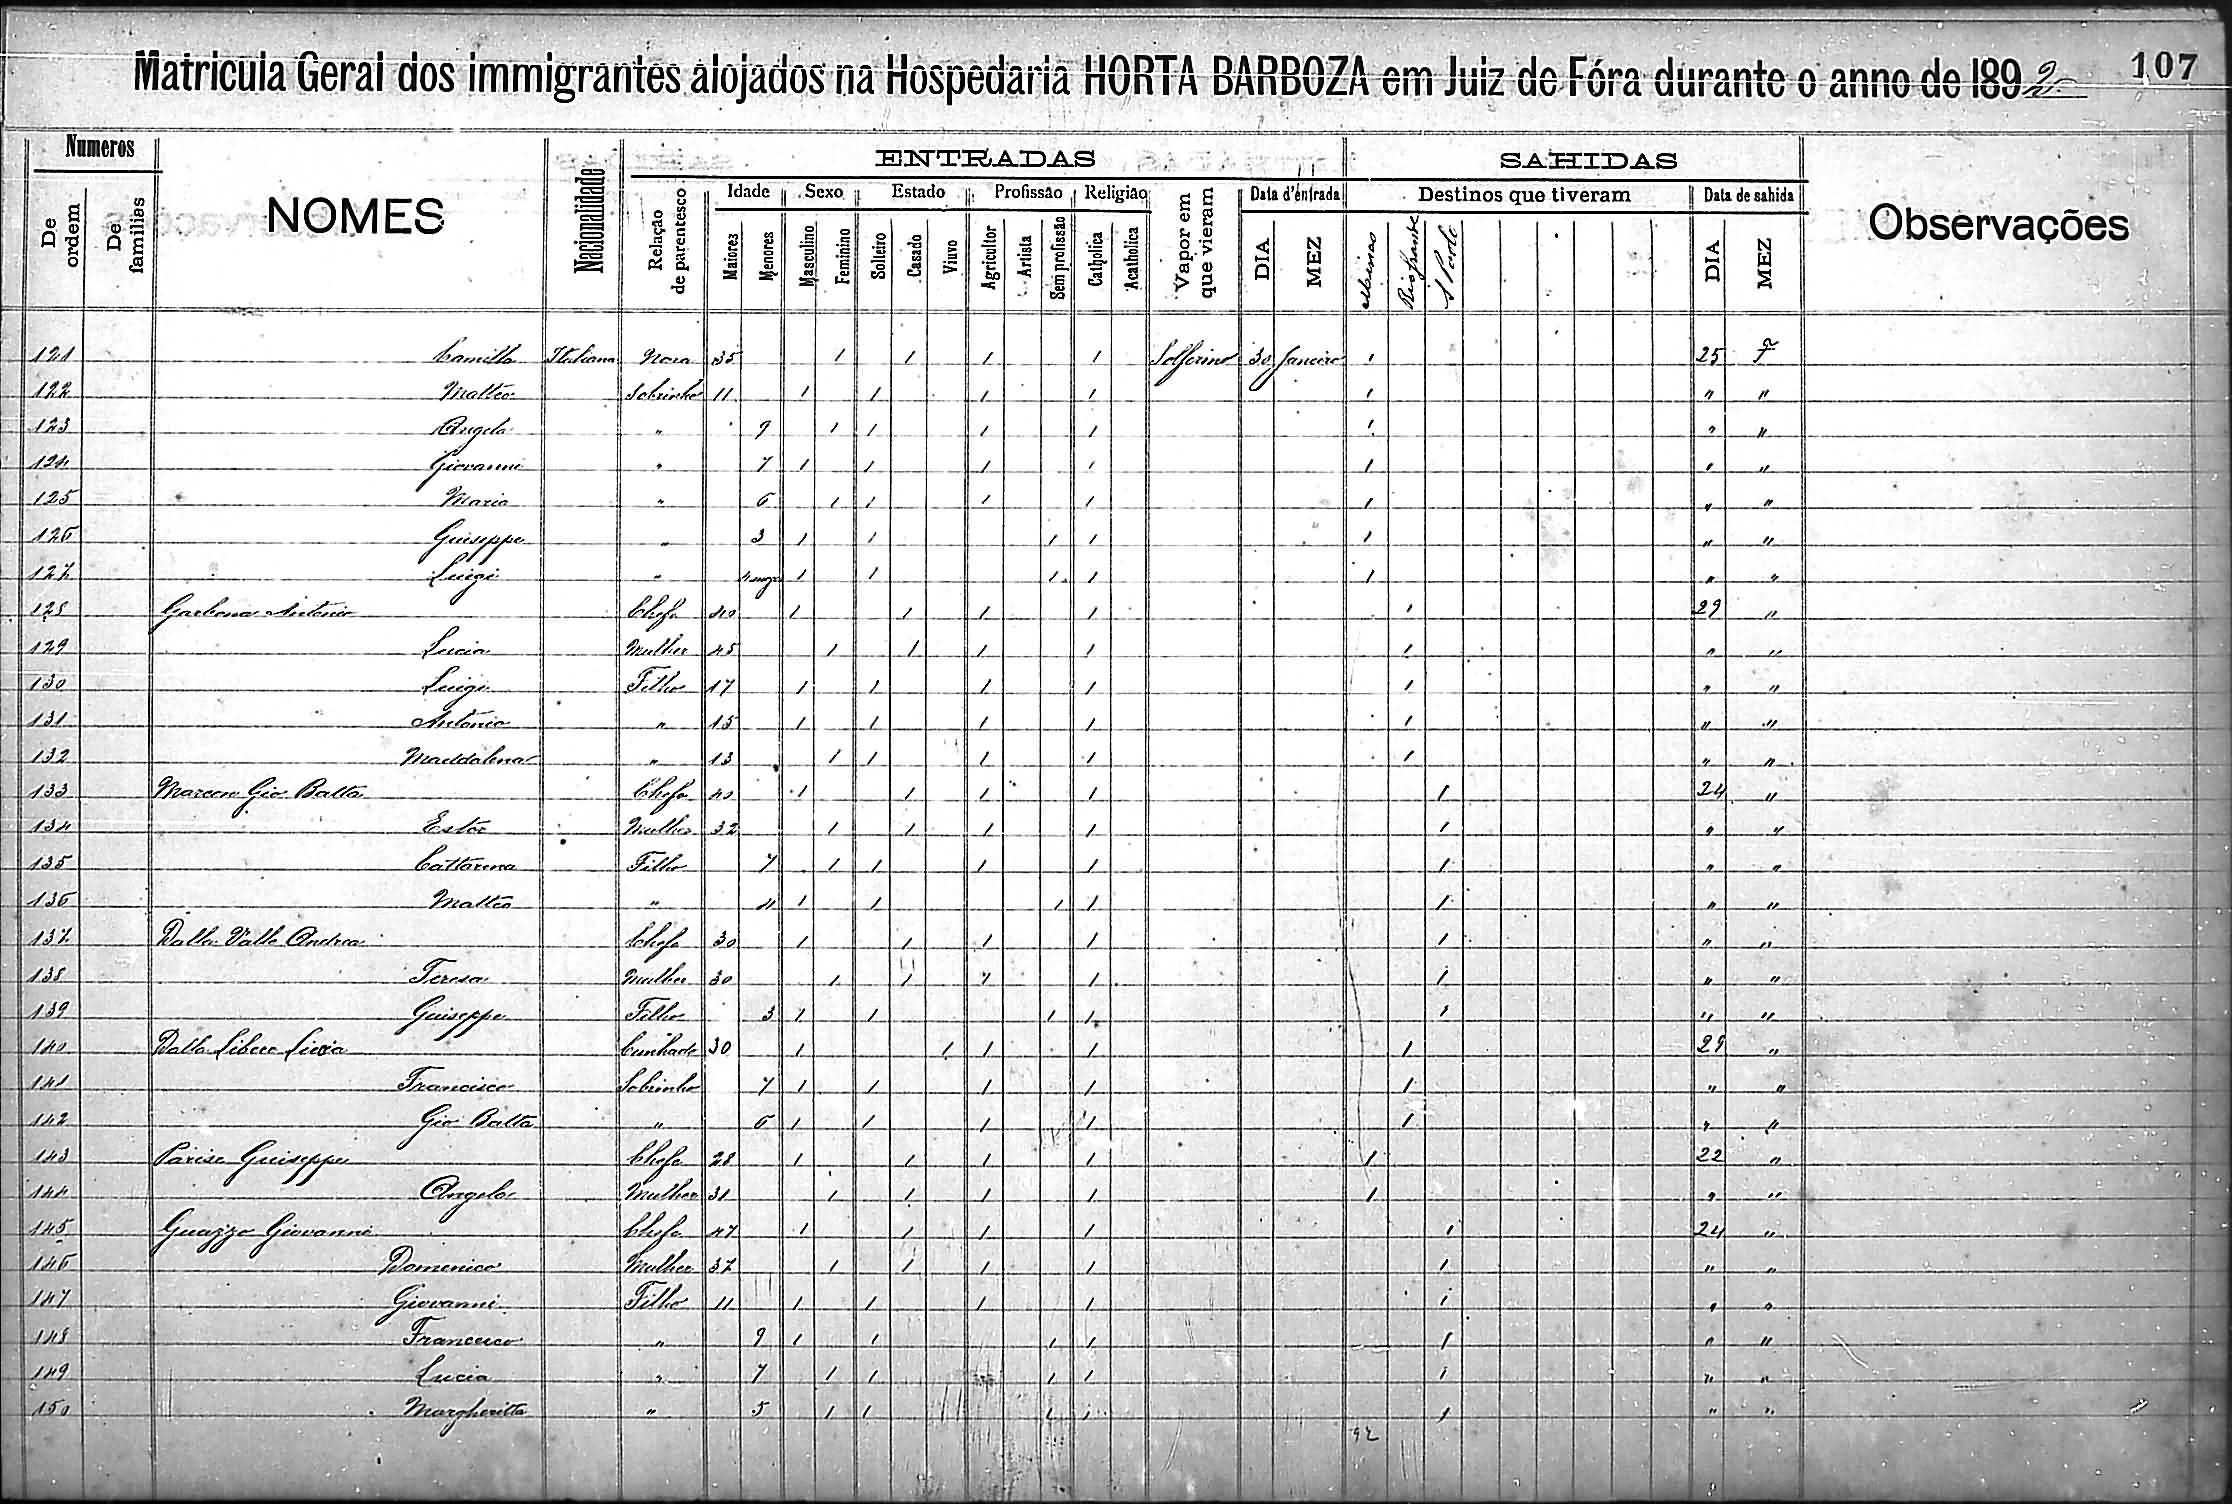 Matricula Geral dos immigrantes alojados na Hospedaria HORTA BARBOZA em Juiz de Fóra durante o anno de 1892 107
Numeros NOMES Nacionalidade ENTRADAS SAHIDAS Observações
De ordem De familias Relação de parentesco Idade Sexo Estado Profissão Religião Vapor em que vieram Data d'entrada Destinos que tiveram Data de sahida
Maiores Menores Masculino Feminino Solteiro Casado Viuvo Agricultor Artista Sem profissão Catholica Acatholica DIA MEZ Minas Rio Grande S Paulo DIA MEZ
121 Camilla Italiana Nora 35 1 1 1 1 Solferino 30 Janeiro 1 25 F
122 Matteo Sobrinho 11 1 1 1 1 1 " "
123 Angela " 9 1 1 1 1 1 " "
124 Giovanni " 7 1 1 1 1 1 " "
125 Maria " 6 1 1 1 1 1 " "
126 Guiseppe " 3 1 1 1 1 1 " "
127 Luigi " 1 1 1 1 1 " "
128 Garbona Antonio Chefe 40 1 1 1 1 1 29 "
129 Lucia Mulher 45 1 1 1 1 1 " "
130 Luigi Filho 17 1 1 1 1 1 " "
131 Antonio " 15 1 1 1 1 1 " "
132 Maddalena " 13 1 1 1 1 1 " "
133 Marcon Gio Batta Chefe 40 1 1 1 1 1 24 "
134 Ester Mulher 32 1 1 1 1 1 " "
135 Cattarina Filho 7 1 1 1 1 1 " "
136 Matteo " 4 1 1 1 1 1 " "
137 Dalla Valle Andrea Chefe 30 1 1 1 1 1 " "
138 Teresa Mulher 30 1 1 1 1 1 " "
139 Guiseppe Filho 3 1 1 1 1 1 " "
140 Dalla Libera Lucia Cunhado 30 1 1 1 1 1 29 "
141 Francisco Sobrinho 7 1 1 1 1 1 " "
142 Gio Batta " 6 1 1 1 1 1 " "
143 Parise Guiseppe Chefe 28 1 1 1 1 1 22 "
144 Angela Mulher 31 1 1 1 1 1 " "
145 Guazzo Giovanni Chefe 47 1 1 1 1 1 24 "
146 Domenico Mulher 37 1 1 1 1 1 " "
147 Giovanni Filho 11 1 1 1 1 1 " "
148 Francesco " 9 1 1 1 1 1 " "
149 Lucia " 7 1 1 1 1 1 " "
150 Margheritta " 5 1 1 1 1 1 " "
92